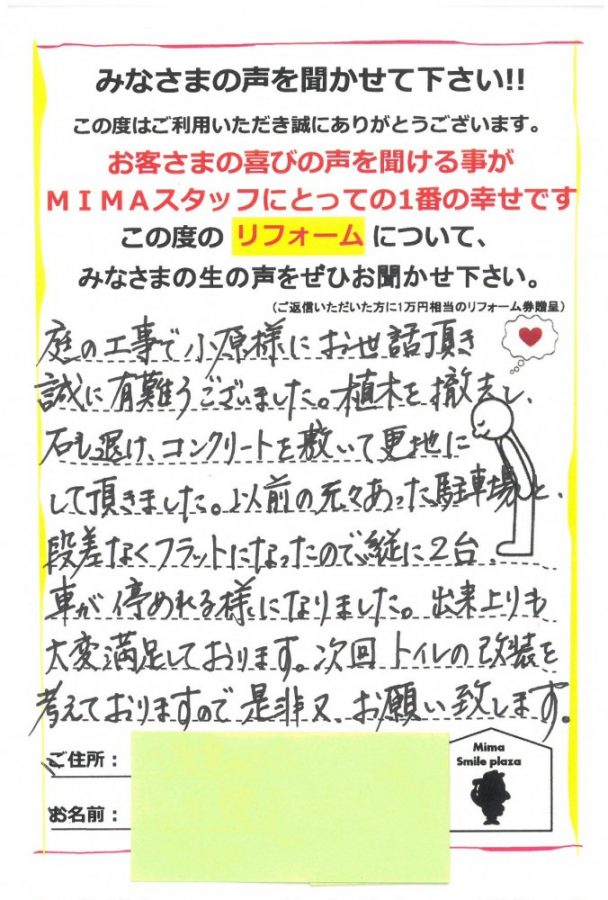 みなさまの声を聞かせて下さい!!
この度はご利用いただき誠にありがとうございます。
お客さまの喜びの声を聞ける事が
ＭＩＭＡスタッフにとっての1番の幸せです
この度の リフォーム について、
みなさまの生の声をぜひお聞かせ下さい。
(ご返信いただいた方に1万円相当のリフォーム券贈呈)
庭の工事で小原様にお世話頂き
誠に有難うございました。植木を撤去し、
石も退け、コンクリートを敷いて更地に
して頂きました。以前の元々あった駐車場と、
段差なくフラットになったので縦に2台、
車が停めれる様になりました。出来上りも
大変満足しております。次回トイレの改装を
考えておりますので是非又、お願い致します。
ご住所：
お名前：
Mima
Smile plaza